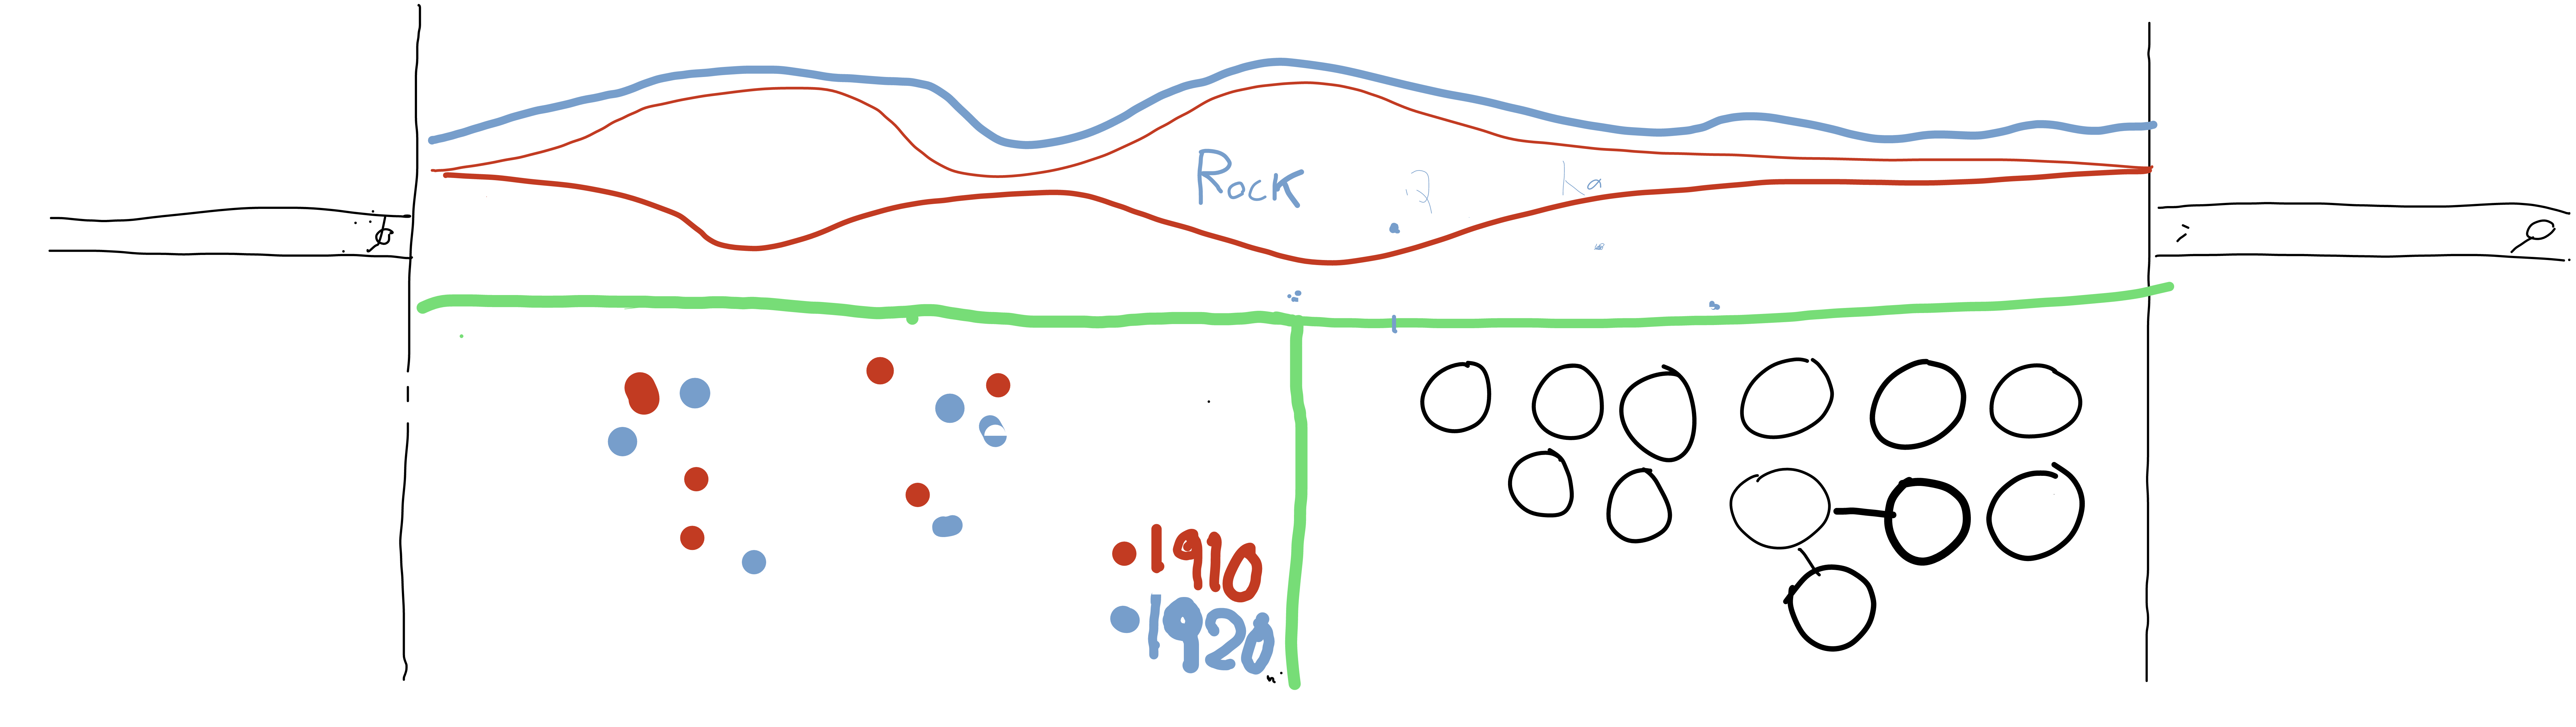 Rock
1910
1920